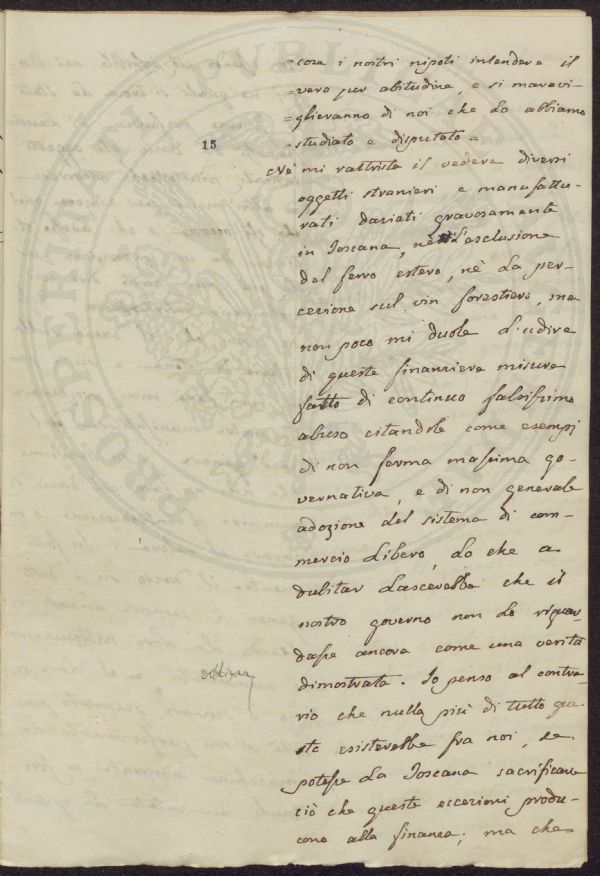 =cora i nostri nipoti intendere il
vero per abitudine, e si maravi-
=glieranno di noi che lo abbiamo
=studiato e disputato=
15
Nè mi rattrista il vedere diversi
oggetti stranieri e manufattu-
rati daziati gravosamente
in Toscana, nè l'esclusione
del ferro estero, nè la per-
cezione sul vin forestiero, ma
non poco mi duole l'udire
di queste finanziere misure
fatto di continuo falsissimo
abuso citandole come esempi
di non ferma massima go-
vernativa, e di non generale
adozione del sistema di com-
mercio libero, lo che a
dubitar lascerebbe che il
nostro governo non lo riguar-
dasse ancora come una verità
dimostrata. Io penso al contra-
rio che nulla più di tutto que-
sto esisterebbe fra noi, se
potesse la Toscana sacrificare
ciò che queste eccezioni produ-
cono alla finanza; ma che
PROSPERITAS
PVBLICA